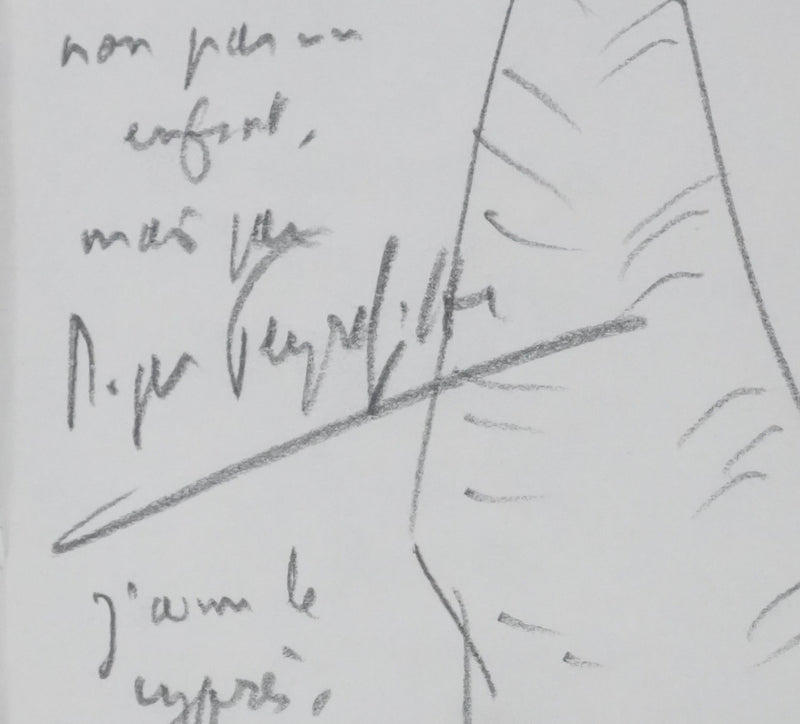 non par un
enfant,
mais par
Roger Peyrefitte
j'aime le
cyprès,